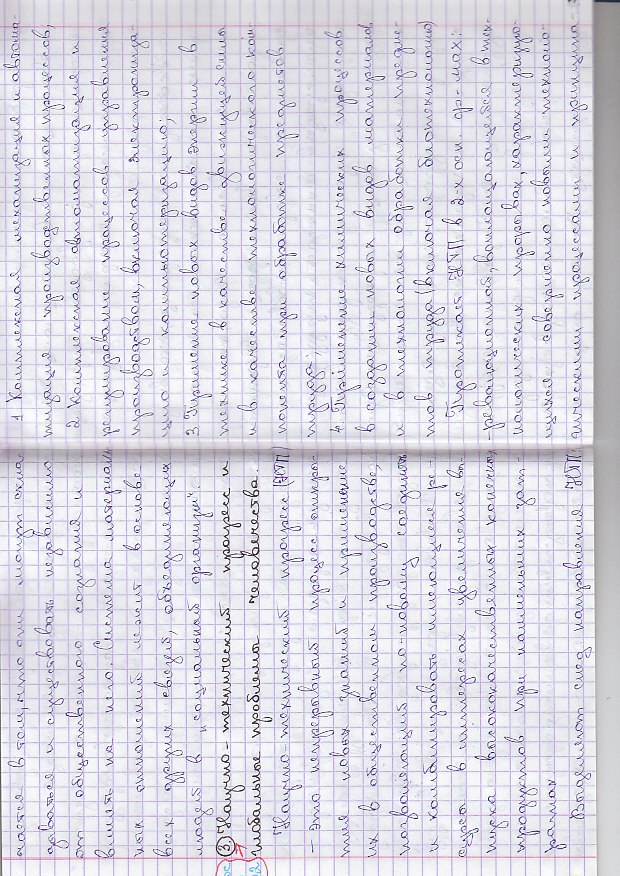 чается в том, что они могут скла-
дываться и существовать независимо
от общественного сознания и
влиять на него. Система материаль-
ных отношений лежит в основе
всех других связей, объединяющих
людей в "социальный организм".
③ Научно-технический прогресс и
глобальные проблемы человечества.
Научно-технический прогресс (НТП)
– это непрерывный процесс откры-
тия новых знаний и применение
их в общественном производстве,
позволяющий по-новому соединять
и комбинировать имеющиеся ре-
сурсы в интересах увеличения вы-
пуска высококачественных конечных
продуктов при наименьших зат-
ратах
Выделяют след направления НТП:
1 Комплексная механизация и автома
тизация производственных процессов;
2. Комплексная автоматизация и
регулирование процессов управления
производством, включая электрониза-
цию и компьютеризацию;
3. Применение новых видов энергии в
технике в качестве движущей силы
и в качестве технологического ком
понента при обработке предметов
труда;
4. Применение химических процессов
в создании новых видов материалов
и в технологии обработки предме-
тов труда (включая биотехнологию)
Протекает НТП в 2-х осн. ф-мах:
- революционной, воплощающейся в тех-
нологических прорывах, характеризую-
щихся совершенно новыми техноло-
гическими процессами и принципа-